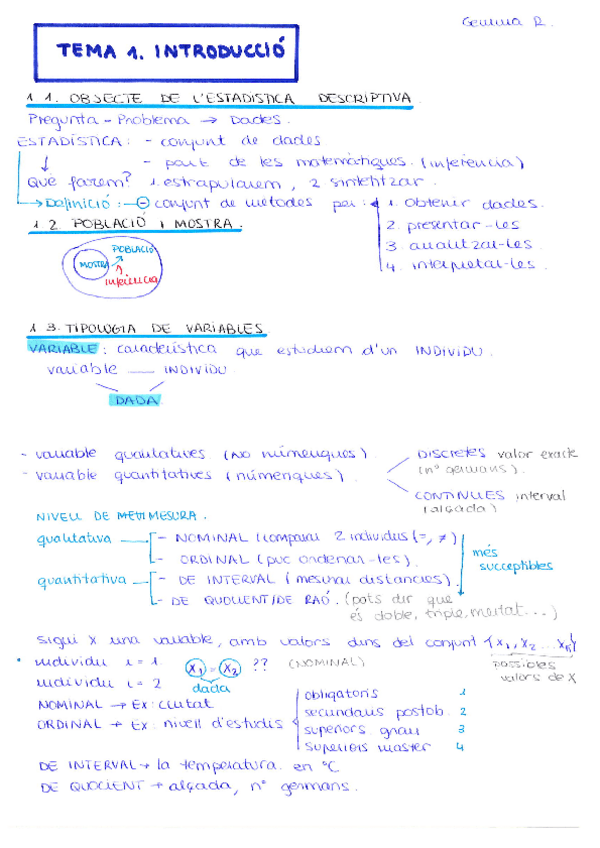 Gemma R.
TEMA 1. INTRODUCCIÓ
1 1. OBJECTE DE L'ESTADISTICA DESCRIPTIVA.
Pregunta - Problema → Dades.
ESTADÍSTICA: - conjunt de dades
- part de les matemàtiques. (inferència)
Què farem? 1. estrapularem, 2 sintetitzar.
Definició: conjunt de mètodes per:
1. obtenir dades.
2. presentar-les
3. analitzar-les
4. interpretar-les.
1 2. POBLACIÓ I MOSTRA.
POBLACIÓ
MOSTRA
inferència
1 3. TIPOLOGIA DE VARIABLES.
VARIABLE: característica que estudiem d'un INDIVIDU.
variable — INDIVIDU
DADA
- variable qualitatives (NO númeriques)
- variable quantitatives (númeriques)
DISCRETES valor exacte
(nº germans).
CONTINUES interval
(alçada)
NIVELL DE MESURA.
qualitativa - NOMINAL (comparar 2 individus (=, ≠)
- ORDINAL (puc ordenar-les).
quantitativa - DE INTERVAL (mesurar distàncies)
- DE QUOCIENT/DE RAÓ. (pots dir que
és doble, triple, meitat...)
més
succeptibles
sigui X una variable, amb valors dins del conjunt {x₁, x₂ ... xₖ}
possibles
valors de X
• individu i = 1. x₁ = x₂ ?? (NOMINAL)
individu i = 2 dada
NOMINAL → Ex: ciutat
ORDINAL → Ex: nivell d'estudis
obligatoris 1
secundaris postob. 2
superiors grau 3
superiors master 4
DE INTERVAL → la temperatura. en °C
DE QUOCIENT → alçada, nº germans.